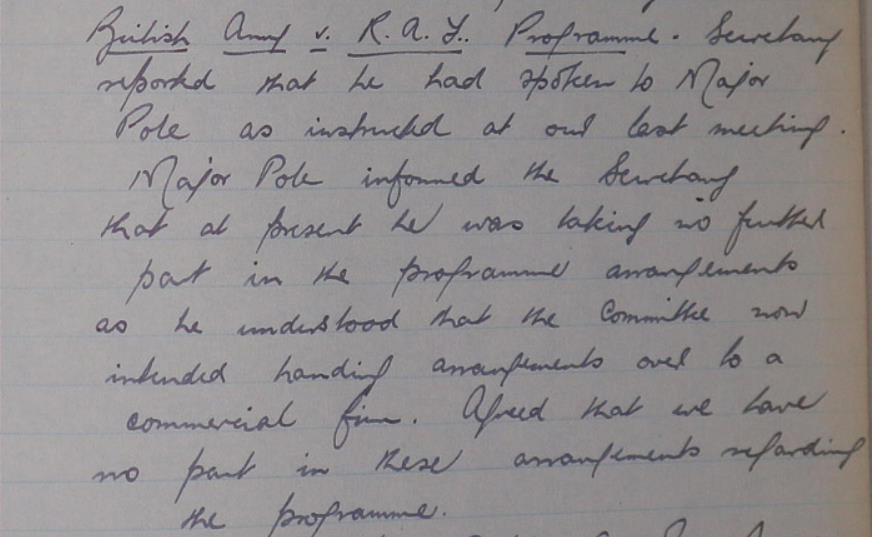 British Army v. R.A.F. Programme. Secretary
reported that he had spoken to Major
Pole as instructed at our last meeting.
Major Pole informed the Secretary
that at present he was taking no further
part in the programme arrangements
as he understood that the Committee now
intended handing arrangements over to a
commercial firm. Agreed that we have
no part in these arrangements regarding
the programme.